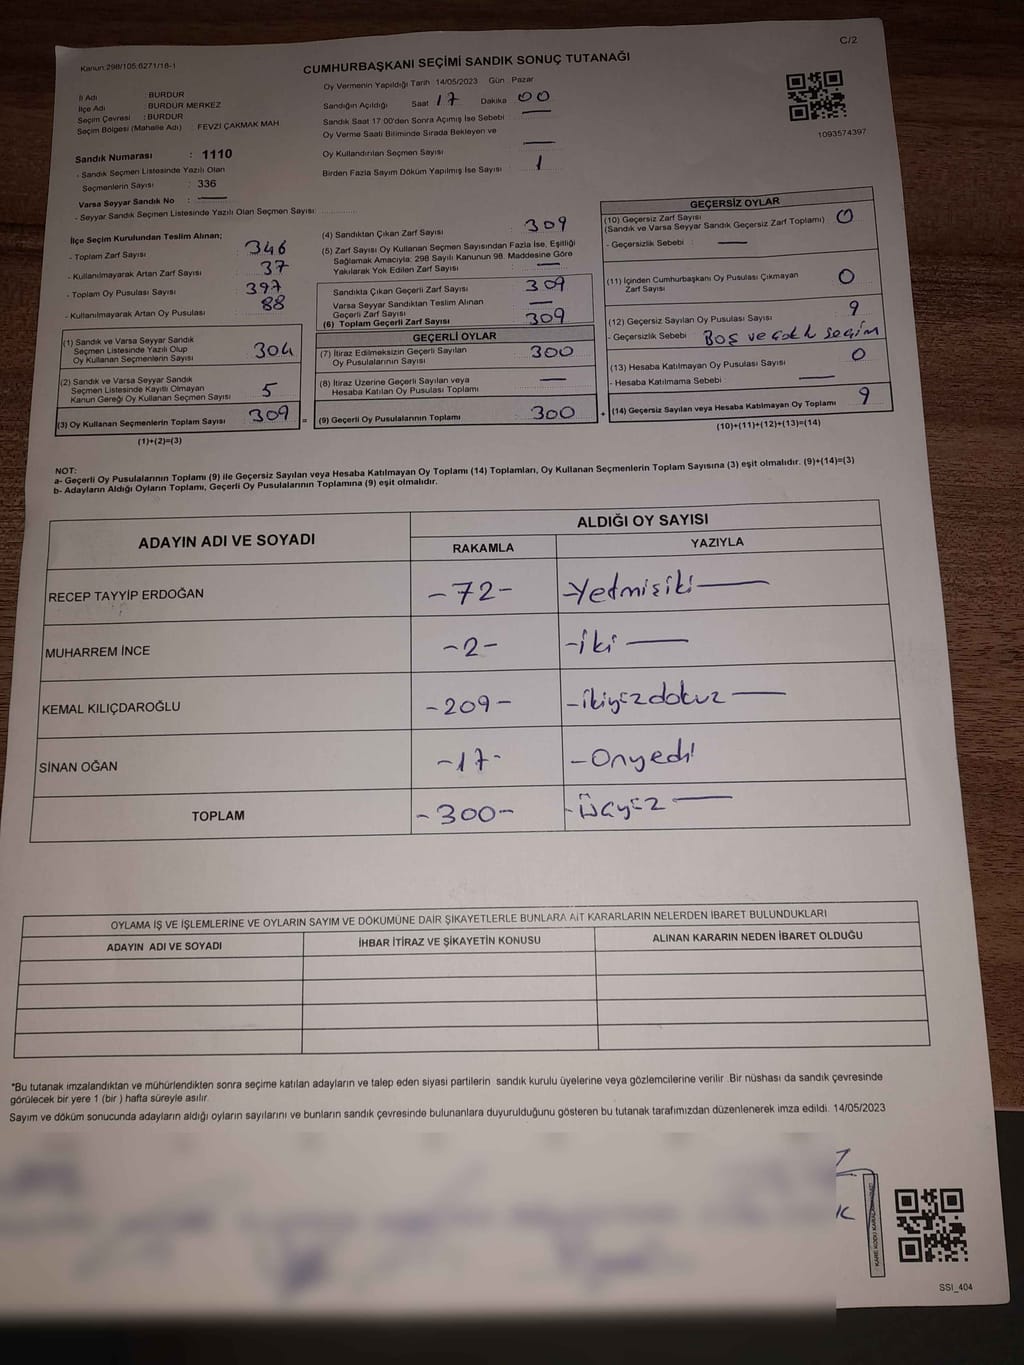 C/2
Kanun:298/105;6271/18-1
CUMHURBAŞKANI SEÇİMİ SANDIK SONUÇ TUTANAĞI
İl Adı : BURDUR
İlçe Adı : BURDUR MERKEZ
Seçim Çevresi : BURDUR
Seçim Bölgesi (Mahalle Adı) : FEVZİ ÇAKMAK MAH
Oy Vermenin Yapıldığı Tarih :14/05/2023 Gün : Pazar
Sandığın Açıldığı Saat 17 Dakika 00
Sandık Saat 17:00'den Sonra Açılmış İse Sebebi : —
Oy Verme Saati Bitiminde Sırada Bekleyen ve
Oy Kullandırılan Seçmen Sayısı : —
Birden Fazla Sayım Döküm Yapılmış İse Sayısı : 1
1093574397
Sandık Numarası : 1110
- Sandık Seçmen Listesinde Yazılı Olan
Seçmenlerin Sayısı : 336
Varsa Seyyar Sandık No : —
- Seyyar Sandık Seçmen Listesinde Yazılı Olan Seçmen Sayısı:
İlçe Seçim Kurulundan Teslim Alınan;
- Toplam Zarf Sayısı : 346
- Kullanılmayarak Artan Zarf Sayısı : 37
- Toplam Oy Pusulası Sayısı : 397
- Kullanılmayarak Artan Oy Pusulası : 88
(1) Sandık ve Varsa Seyyar Sandık
Seçmen Listesinde Yazılı Olup
Oy Kullanan Seçmenlerin Sayısı : 304
(2) Sandık ve Varsa Seyyar Sandık
Seçmen Listesinde Kayıtlı Olmayan
Kanun Gereği Oy Kullanan Seçmen Sayısı : 5
(3) Oy Kullanan Seçmenlerin Toplam Sayısı : 309
(1)+(2)=(3)
(4) Sandıktan Çıkan Zarf Sayısı : 309
(5) Zarf Sayısı Oy Kullanan Seçmen Sayısından Fazla İse, Eşitliği
Sağlamak Amacıyla: 298 Sayılı Kanunun 98. Maddesine Göre
Yakılarak Yok Edilen Zarf Sayısı : —
Sandıkta Çıkan Geçerli Zarf Sayısı : 309
Varsa Seyyar Sandıktan Teslim Alınan
Geçerli Zarf Sayısı : —
(6) Toplam Geçerli Zarf Sayısı : 309
GEÇERLİ OYLAR
(7) İtiraz Edilmeksizin Geçerli Sayılan
Oy Pusulalarının Sayısı : 300
(8) İtiraz Üzerine Geçerli Sayılan veya
Hesaba Katılan Oy Pusulası Toplamı : —
(9) Geçerli Oy Pusulalarının Toplamı : 300
GEÇERSİZ OYLAR
(10) Geçersiz Zarf Sayısı
(Sandık ve Varsa Seyyar Sandık Geçersiz Zarf Toplamı) : 0
- Geçersizlik Sebebi : —
(11) İçinden Cumhurbaşkanı Oy Pusulası Çıkmayan
Zarf Sayısı : 0
(12) Geçersiz Sayılan Oy Pusulası Sayısı : 9
- Geçersizlik Sebebi : Boş ve çoklu seçim
(13) Hesaba Katılmayan Oy Pusulası Sayısı : 0
- Hesaba Katılmama Sebebi : —
(14) Geçersiz Sayılan veya Hesaba Katılmayan Oy Toplamı : 9
(10)+(11)+(12)+(13)=(14)
NOT:
a- Geçerli Oy Pusulalarının Toplamı (9) ile Geçersiz Sayılan veya Hesaba Katılmayan Oy Toplamı (14) Toplamları, Oy Kullanan Seçmenlerin Toplam Sayısına (3) eşit olmalıdır. (9)+(14)=(3)
b- Adayların Aldığı Oyların Toplamı, Geçerli Oy Pusulalarının Toplamına (9) eşit olmalıdır.
ADAYIN ADI VE SOYADI ALDIĞI OY SAYISI
RAKAMLA YAZIYLA
RECEP TAYYİP ERDOĞAN -72- -Yetmişiki—
MUHARREM İNCE -2- -iki—
KEMAL KILIÇDAROĞLU -209- -ikiyüzdokuz—
SİNAN OĞAN -17- -Onyedi
TOPLAM -300- -Üçyüz—
OYLAMA İŞ VE İŞLEMLERİNE VE OYLARIN SAYIM VE DÖKÜMÜNE DAİR ŞİKAYETLERLE BUNLARA AİT KARARLARIN NELERDEN İBARET BULUNDUKLARI
ADAYIN ADI VE SOYADI İHBAR İTİRAZ VE ŞİKAYETİN KONUSU ALINAN KARARIN NEDEN İBARET OLDUĞU
*Bu tutanak imzalandıktan ve mühürlendikten sonra seçime katılan adayların ve talep eden siyasi partilerin sandık kurulu üyelerine veya gözlemcilerine verilir. Bir nüshası da sandık çevresinde
görülecek bir yere 1 (bir ) hafta süreyle asılır.
Sayım ve döküm sonucunda adayların aldığı oyların sayılarını ve bunların sandık çevresinde bulunanlara duyurulduğunu gösteren bu tutanak tarafımızdan düzenlenerek imza edildi. 14/05/2023
SSI_404